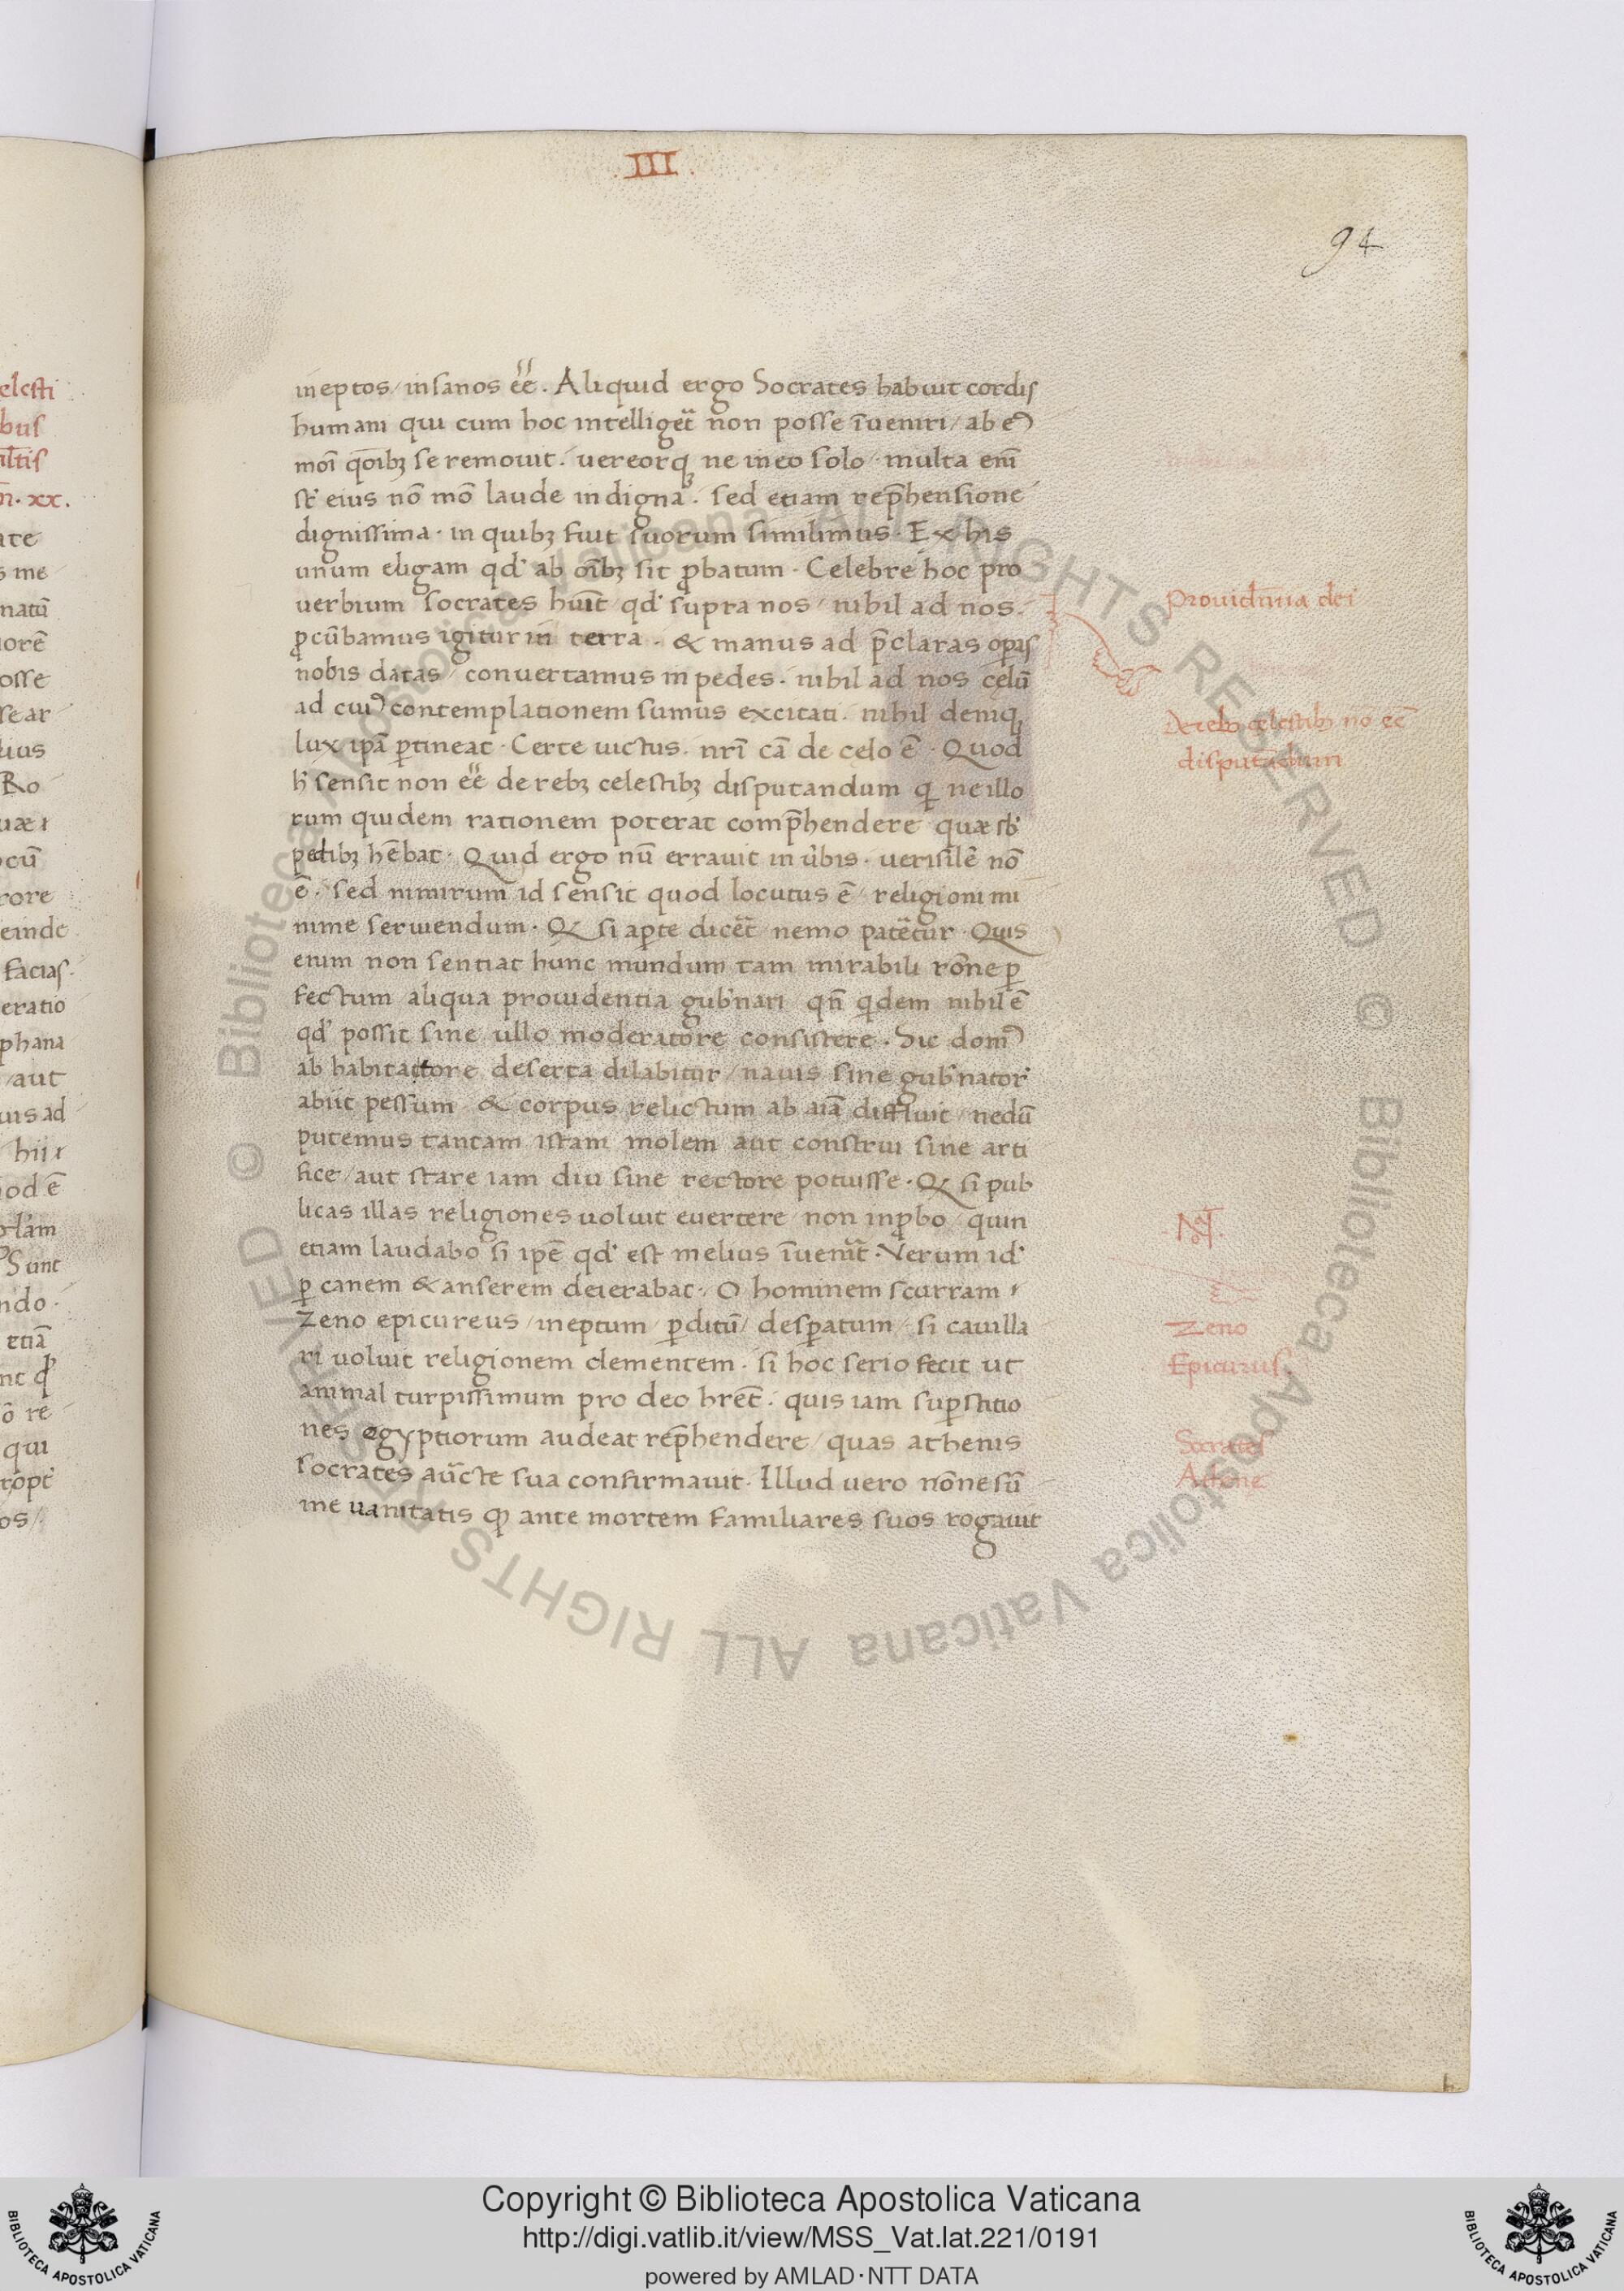 .III.
94
ineptos/insanos eē. Aliquid ergo Socrates habuit cordis
humani qui cum hoc intelliget̄ non posse īueniri/ab eꝰ
moī qōibꝫ se remouit. uereorqꝫ ne in eo solo. multa enī
st̄ eius nō mō laude indigna. sed etiam rep̄hensione
dignissima. in quibꝫ fuit suorum similimus. Ex his
unum eligam qd̓ ab oībꝫ sit ꝓbatum. Celebre hoc pro
uerbium socrates huit̄ qd̓ supra nos/nihil ad nos.
ꝓcūbamus igitur in terra. & manus ad p̄claras opis
nobis datas/conuertamus in pedes. nihil ad nos celū
ad cuiꝰ contemplationem sumus excitati. nihil deniqꝫ
lux ipā ꝑtineat. Certe uictus. nrī cā de celo ē. Quod
h̓ sensit non eē de rebꝫ celestibꝫ disputandum qꝫ ne illo
rum quidem rationem poterat comp̄hendere quæ sb̓
pedibꝫ hēbat. Quid ergo nū errauit in ūbis. uerisilē nō
ē. sed nimirum id sensit quod locutus ē/religioni mi
nime seruiendum. Qꝫ si aꝑte dicet̄ nemo patēt̄ur. Quis
enim non sentiat hunc mundum tam mirabili rōne ꝑ
fectum aliqua prouidentia gub̓nari qn̄ qdem nihil ē
qd̓ possit sine ullo moderatore consistere. Sic domꝰ
ab habitattore deserta dilabitur/nauis sine gub̓nator̓
abiit pessum & corpus relictum ab aīa diffluit/nedū
putemus tantam istam molem aut construi sine arti
fice/aut stare iam diu sine rectore potuisse. Qꝫ si pub
licas illas religiones uoluit euertere/non inꝓbo/quin
etiam laudabo si ipē qd̓ est melius īuenit̄. Verum id̓
ꝑ canem & anserem deierabat. O hominem scurram ⁊
Zeno epicureus/ineptum/ꝑditū/desꝑatum/si cauilla
ri uoluit religionem clementem. si hoc serio fecit ut
animal turpissimum pro deo hret̄. quis iam suꝑstitio
nes egyptiorum audeat rep̄hendere/quas athenis
socrates auc̄te sua confirmauit. Illud uero nōne sū
me uanitatis qꝫ ante mortem familiares suos rogauit
Prouid̄nnia dei
De reb celestibꝫ no eē
disputādum
Not.
Zeno
Epicurus.
Socrates
elesti
bus
n̄. xx.
ate
s me
natū
iorē
osse
se ar
lius
Ro
uæ ⁊
ocū
rore
einde
facias.
eratio
phana
/aut
uis ad
hii ⁊
od ē
Sunt
ndo.
etiā
nt qꝫ
ō re
qui
os/.
Copyright © Biblioteca Apostolica Vaticana
http://digi.vatlib.it/view/MSS_Vat.lat.221/0191
powered by AMLAD·NTT DATA
BIBLIOTECA APOSTOLICA VATICANA
BIBLIOTECA APOSTOLICA VATICANA
© Biblioteca Apostolica Vaticana ALL RIGHTS RESERVED
© Biblioteca Apostolica Vaticana ALL RIGHTS RESERVED